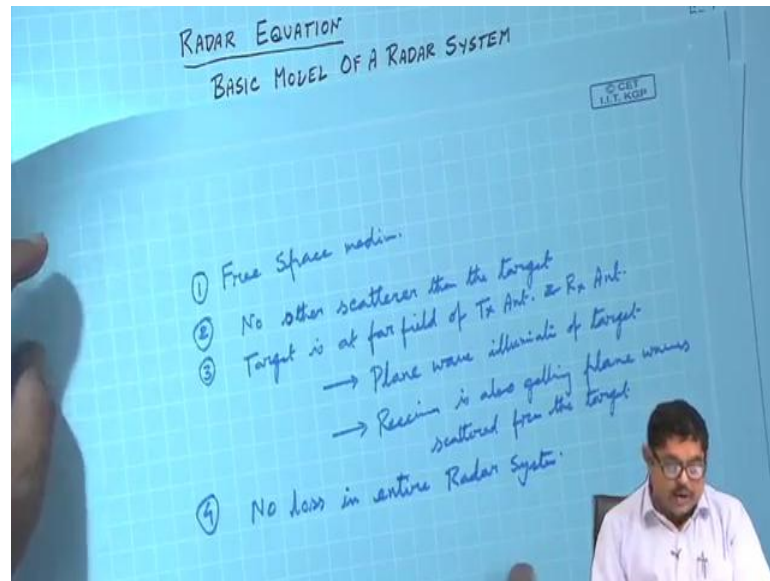 RADAR EQUATION
BASIC MODEL OF A RADAR SYSTEM
© CET
I.I.T. KGP
① Free Space medium.
② No other scatterer than the target
③ Target is at far field of Tx Ant. & Rx Ant.
→ Plane wave of target
→ is also getting plane waves
scattered from the target
④ No loss in entire Radar System.